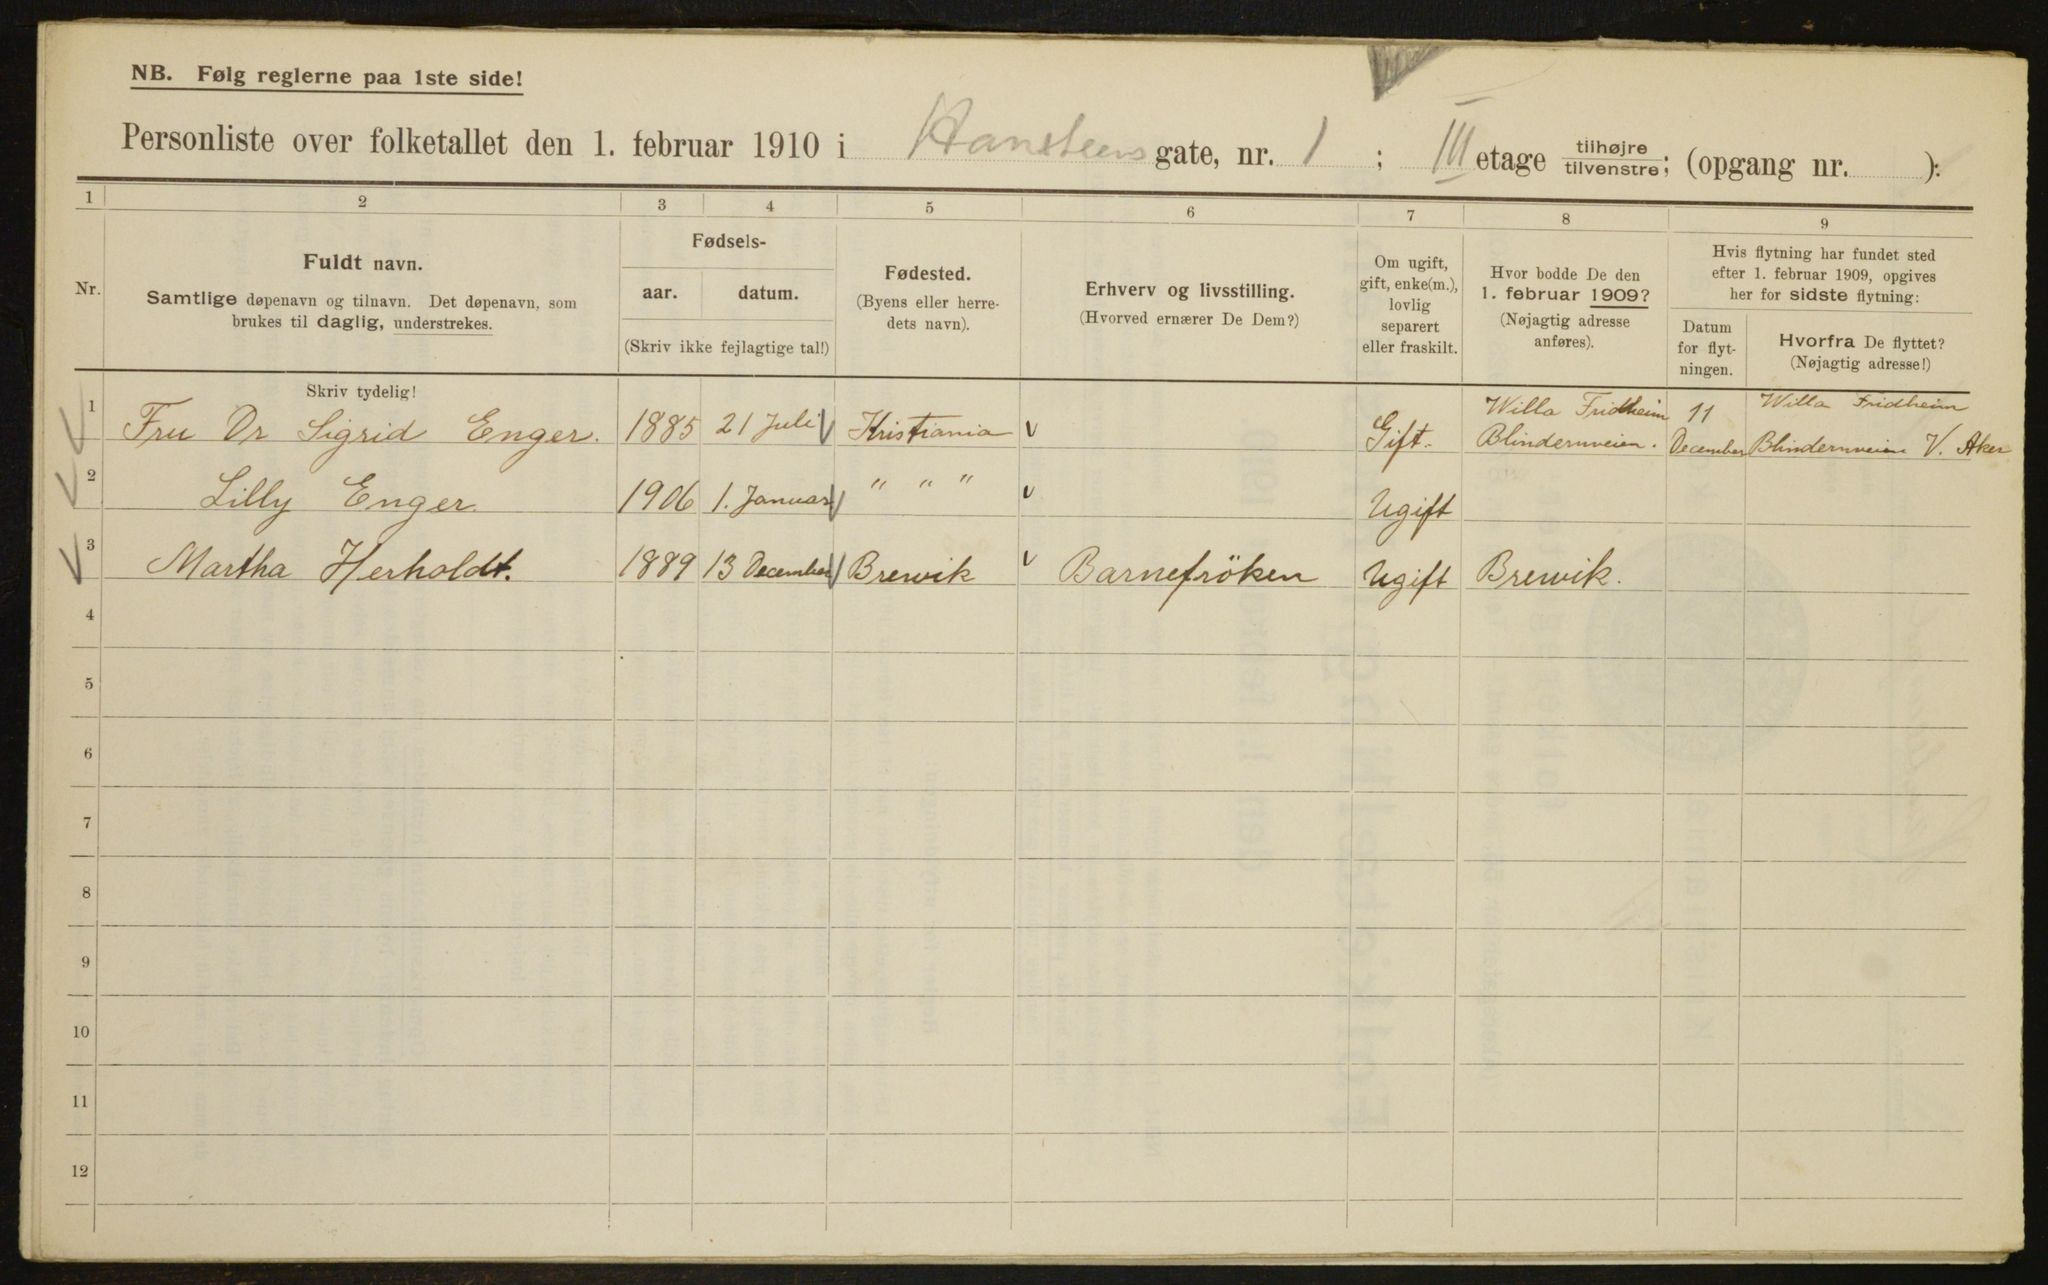 NB. Følg reglerne paa 1ste side!
Personliste over folketallet den 1. februar 1910 i Hansteens gate, nr. 1 ; III etage tilhøjre tilvenstre; (opgang nr. ):
1 2 3 4 5 6 7 8 9
Nr.
Fuldt navn.
Samtlige døpenavn og tilnavn. Det døpenavn, som
brukes til daglig, understrekes.
Fødsels-
aar. datum.
(Skriv ikke fejlagtige tal!)
Fødested.
(Byens eller herre-
dets navn).
Erhverv og livsstilling.
(Hvorved ernærer De Dem?)
Om ugift,
gift, enke(m.),
lovlig
separert
eller fraskilt.
Hvor bodde De den
1. februar 1909?
(Nøjagtig adresse
anføres).
Hvis flytning har fundet sted
efter 1. februar 1909, opgives
her for sidste flytning:
Datum
for flyt-
ningen.
Hvorfra De flyttet?
(Nøjagtig adresse!)
Skriv tydelig!
1 Fru Dr Sigrid Enger. 1885 21 Juli Kristiania Gift. Willa Fridheim Blindernveien. 11 December Willa Fridheim Blindernveien V. Aker
2 Lilly Enger. 1906 1. Januar " " " Ugift
3 Martha Herholdt. 1889 13 December Brevik Barnefröken Ugift Brevik.
4
5
6
7
8
9
10
11
12